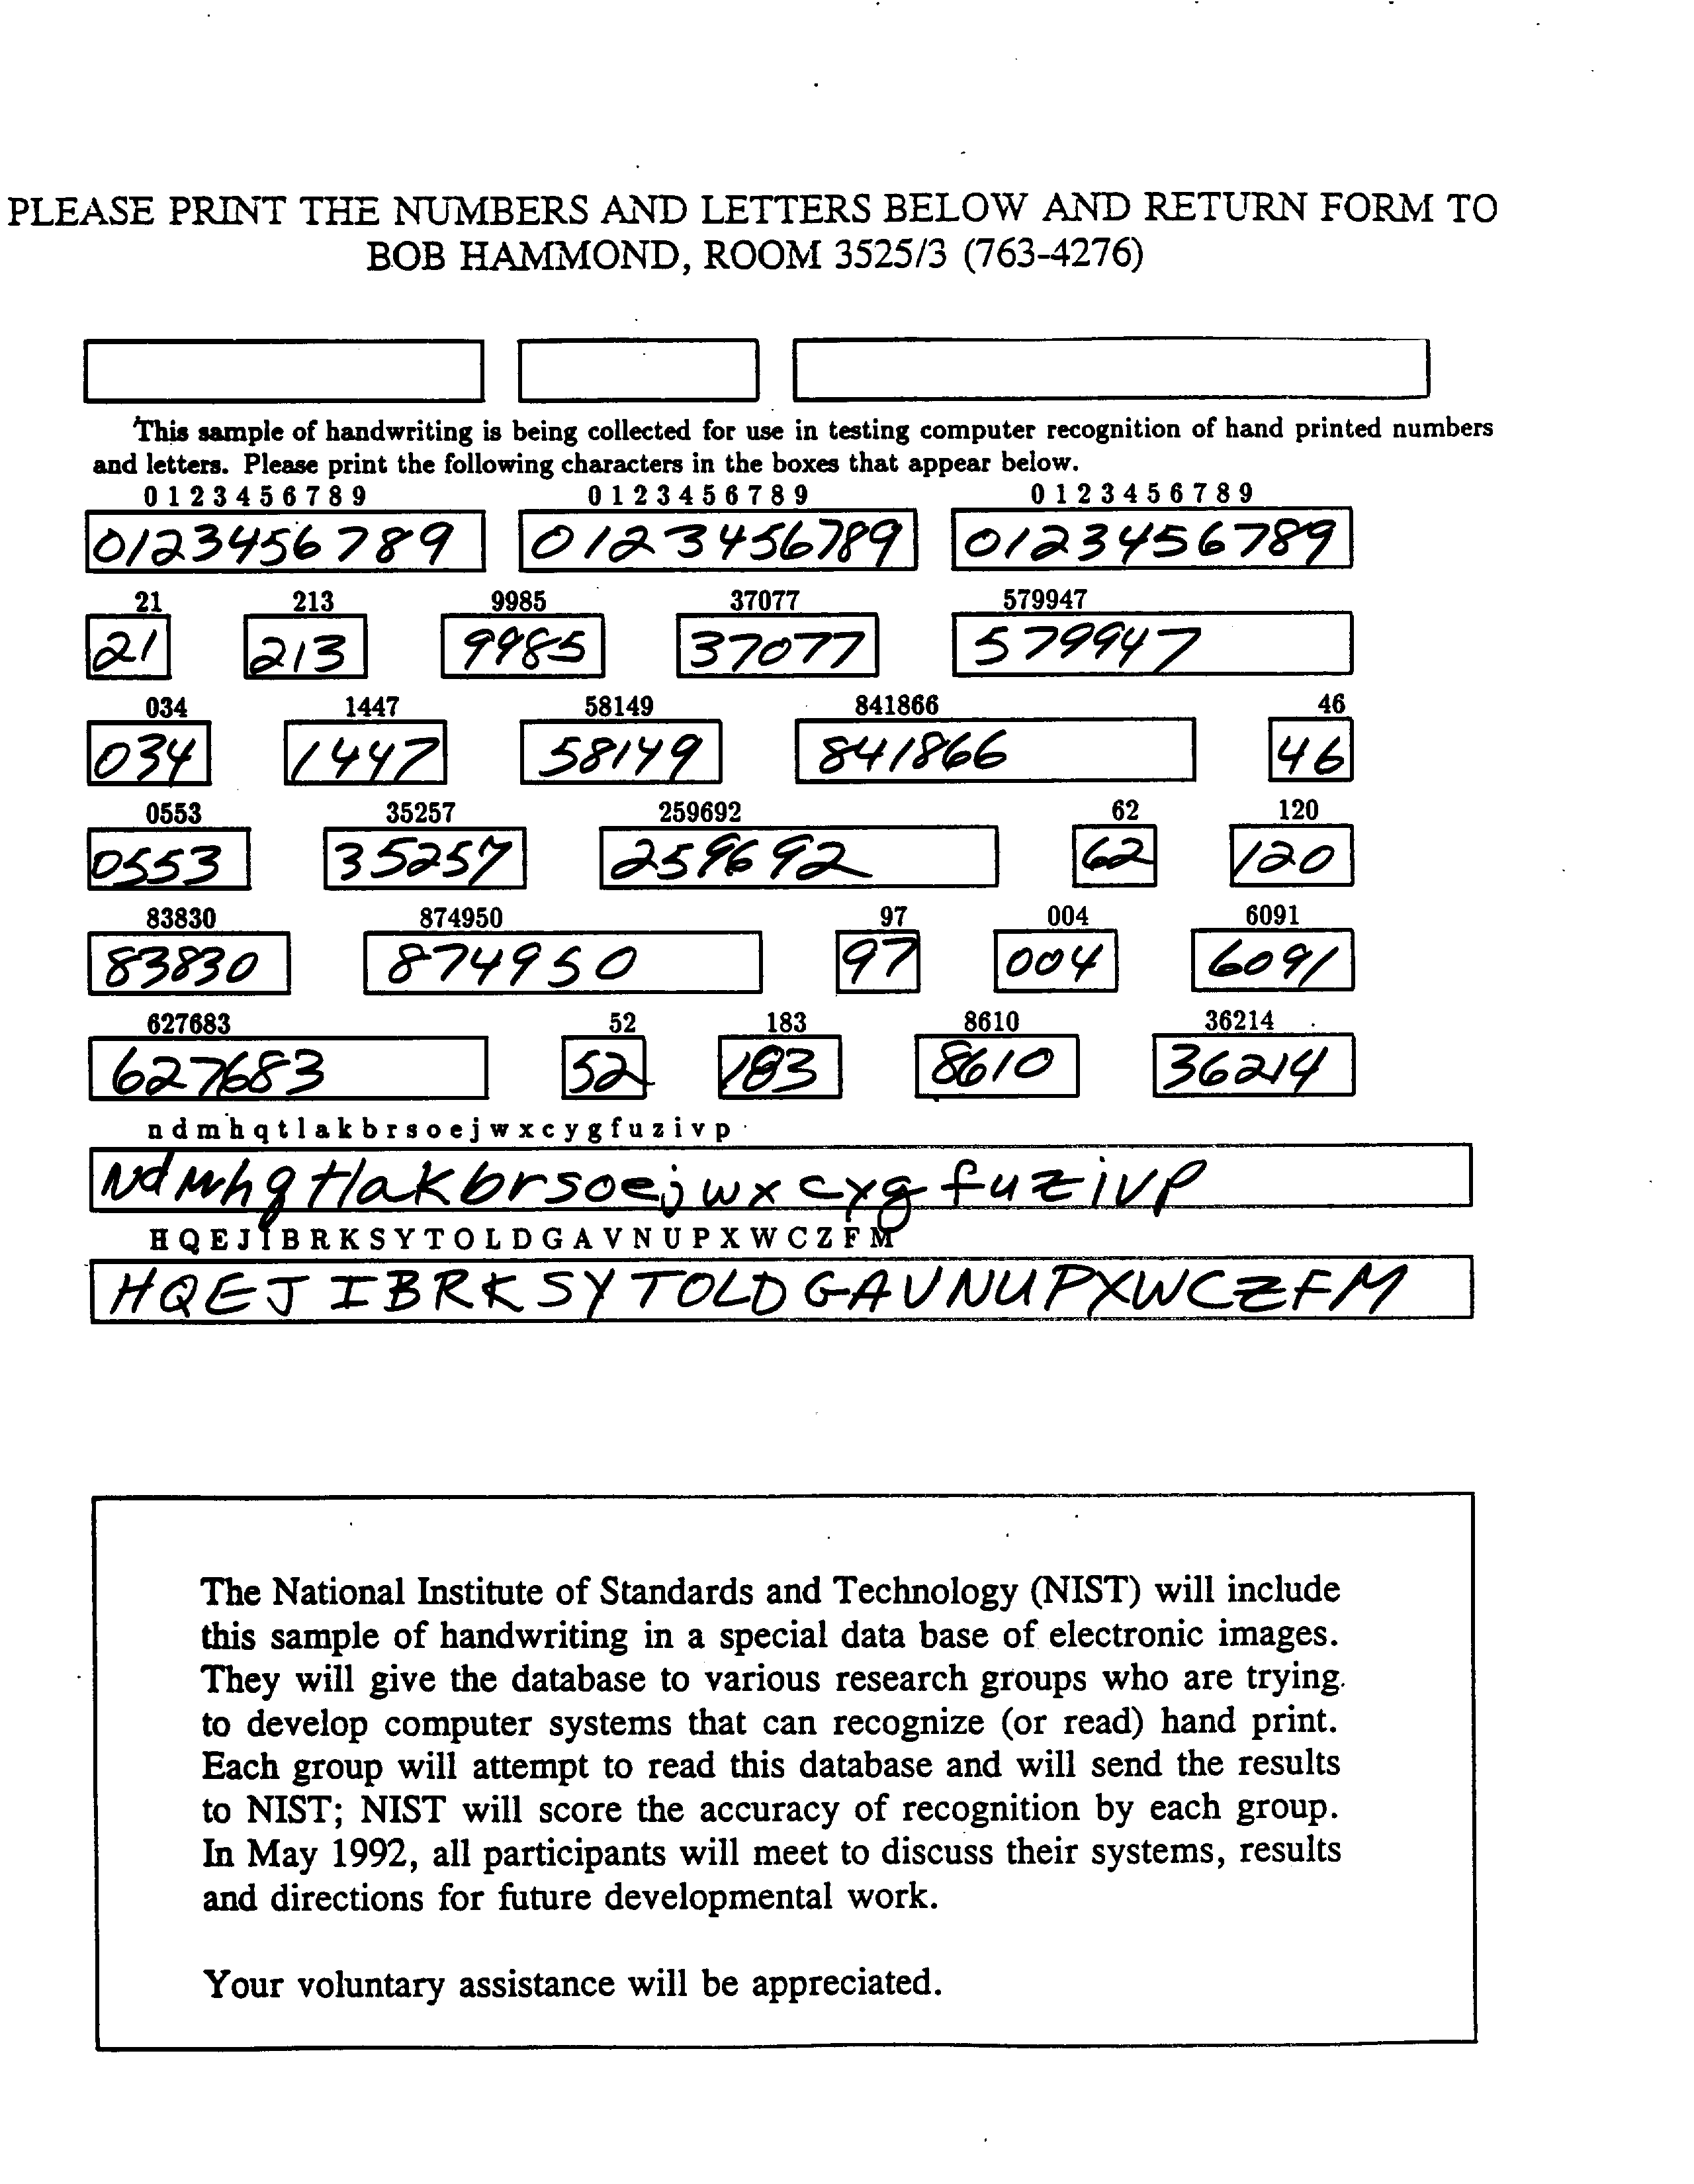 PLEASE PRINT THE NUMBERS AND LETTERS BELOW AND RETURN FORM TO
BOB HAMMOND, ROOM 3525/3 (763-4276)
This sample of handwriting is being collected for use in testing computer recognition of hand printed numbers
and letters. Please print the following characters in the boxes that appear below.
0 1 2 3 4 5 6 7 8 9 0 1 2 3 4 5 6 7 8 9 0 1 2 3 4 5 6 7 8 9
0123456789 0123456789 0123456789
21 213 9985 37077 579947
21 213 9985 37077 579947
034 1447 58149 841866 46
034 1447 58149 841866 46
0553 35257 259692 62 120
0553 35257 259692 62 120
83830 874950 97 004 6091
83830 874950 97 004 6091
627683 52 183 8610 36214
627683 52 183 8610 36214
n d m h q t l a k b r s o e j w x c y g f u z i v p
ndmhqtlakbrsoejwxcygfuzivp
H Q E J I B R K S Y T O L D G A V N U P X W C Z F M
HQEJIBRKSYTOLDGAVNUPXWCZFM
The National Institute of Standards and Technology (NIST) will include
this sample of handwriting in a special data base of electronic images.
They will give the database to various research groups who are trying
to develop computer systems that can recognize (or read) hand print.
Each group will attempt to read this database and will send the results
to NIST; NIST will score the accuracy of recognition by each group.
In May 1992, all participants will meet to discuss their systems, results
and directions for future developmental work.
Your voluntary assistance will be appreciated.